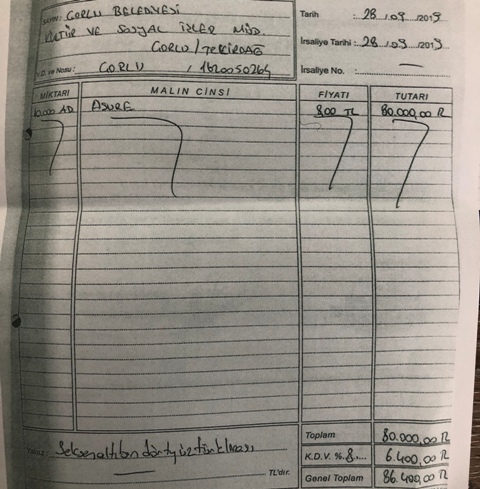 SAYIN: ÇORLU BELEDİYESİ
KÜLTÜR VE SOSYAL İŞLER MÜD.
ÇORLU / TEKİRDAĞ
V.D. ve Nosu: ÇORLU / 1620050264
Tarih : 28 / 09 / 2019
İrsaliye Tarihi : 28 / 09 / 2019
İrsaliye No. :
MİKTARI MALIN CİNSİ FİYATI TUTARI
10.000 AD AŞURE 8,00 TL 80.000,00 TL
Toplam 80.000,00 TL
K.D.V. %.8.... 6.400,00 TL
Genel Toplam 86.400,00 TL
Yalnız : Seksenaltıbindörtyüztürklirası
TL'dır.